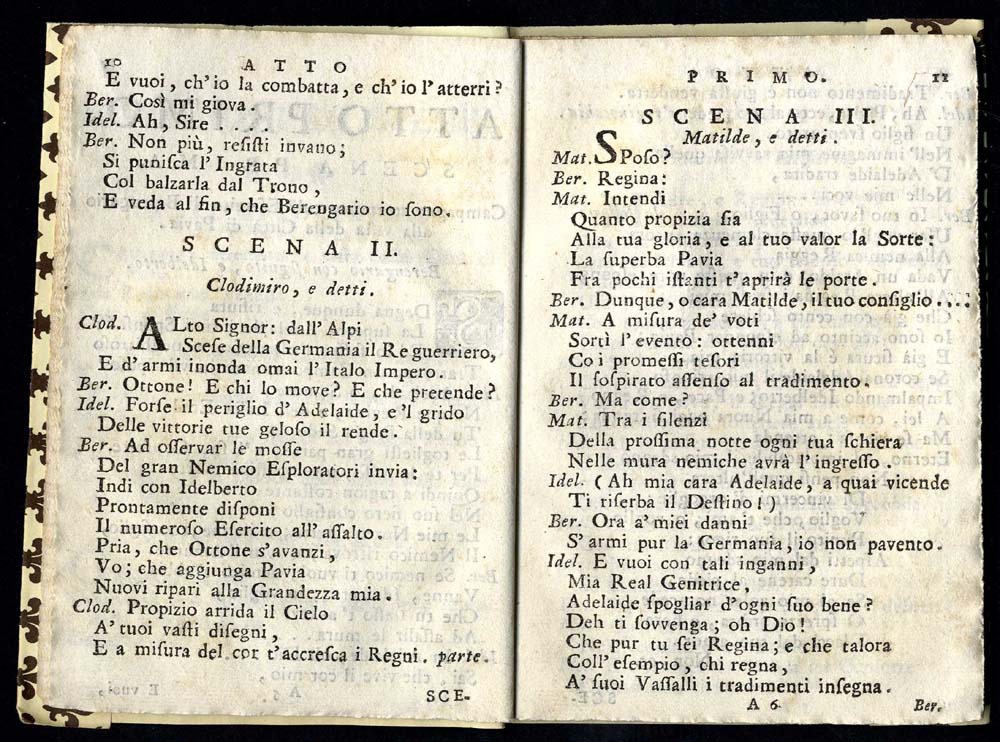 10 ATTO
E vuoi, ch' io la combatta, e ch' io l' atterri?
Ber. Così mi giova.
Idel. Ah, Sire ....
Ber. Non più, resisti invano;
Si punisca l' Ingrata
Col balzarla dal Trono,
E veda al fin, che Berengario io sono.
SCENA II.
Clodimiro, e detti.
Clod. ALto Signor: dall' Alpi
Scese della Germania il Re guerriero,
E d' armi inonda omai l' Italo Impero.
Ber. Ottone! E chi lo move? E che pretende?
Idel. Forse il periglio d' Adelaide, e 'l grido
Delle vittorie tue geloso il rende.
Ber. Ad osservar le mosse
Del gran Nemico Esploratori invia:
Indi con Idelberto
Prontamente disponi
Il numeroso Esercito all' assalto.
Pria, che Ottone s' avanzi,
Vo; che aggiunga Pavia
Nuovi ripari alla Grandezza mia.
Clod. Propizio arrida il Cielo
A' tuoi vasti disegni,
E a misura del cor t' accresca i Regni. parte.
SCE-
PRIMO. 11
SCENA III.
Matilde, e detti.
Mat. SPoso?
Ber. Regina:
Mat. Intendi
Quanto propizia sia
Alla tua gloria, e al tuo valor la Sorte:
La superba Pavia
Fra pochi istanti t' aprirà le porte.
Ber. Dunque, o cara Matilde, il tuo consiglio....;
Mat. A misura de' voti
Sortì l' evento: ottenni
Co i promessi tesori
Il sospirato assenso al tradimento.
Ber. Ma come?
Mat. Tra i silenzi
Della prossima notte ogni tua schiera
Nelle mura nemiche avrà l' ingresso.
Idel. (Ah mia cara Adelaide, a quai vicende
Ti riserba il Destino!)
Ber. Ora a' miei danni
S' armi pur la Germania, io non pavento.
Idel. E vuoi con tali inganni,
Mia Real Genitrice,
Adelaide spogliar d' ogni suo bene?
Deh ti sovvenga; oh Dio!
Che pur tu sei Regina; e che talora
Coll' esempio, chi regna,
A' suoi Vassalli i tradimenti insegna.
A 6 Ber.